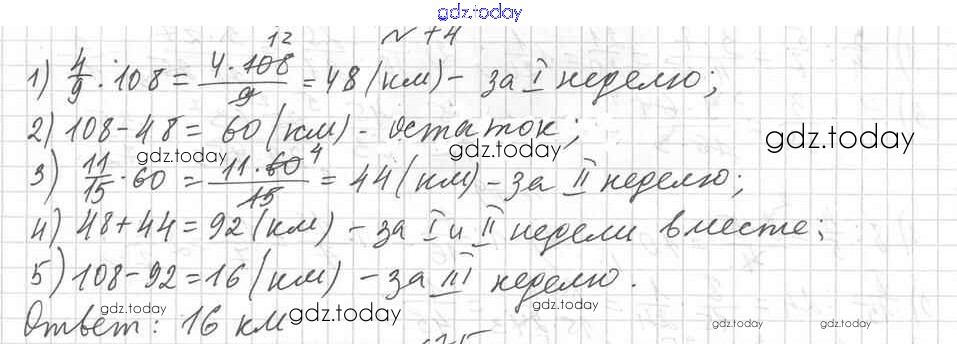 gdz.today
№ 74
1) 4/9 · 108 = 4 · 108 12 / 9 = 48 (км) - за I неделю;
2) 108 - 48 = 60 (км) - остаток;
gdz.today gdz.today gdz.today
3) 11/15 · 60 = 11 · 60 4 / 15 = 44 (км) - за II неделю;
4) 48 + 44 = 92 (км) - за I и II недели вместе;
5) 108 - 92 = 16 (км) - за III неделю.
gdz.today gdz.today gdz.today
Ответ: 16 км
gdz.today gdz.today